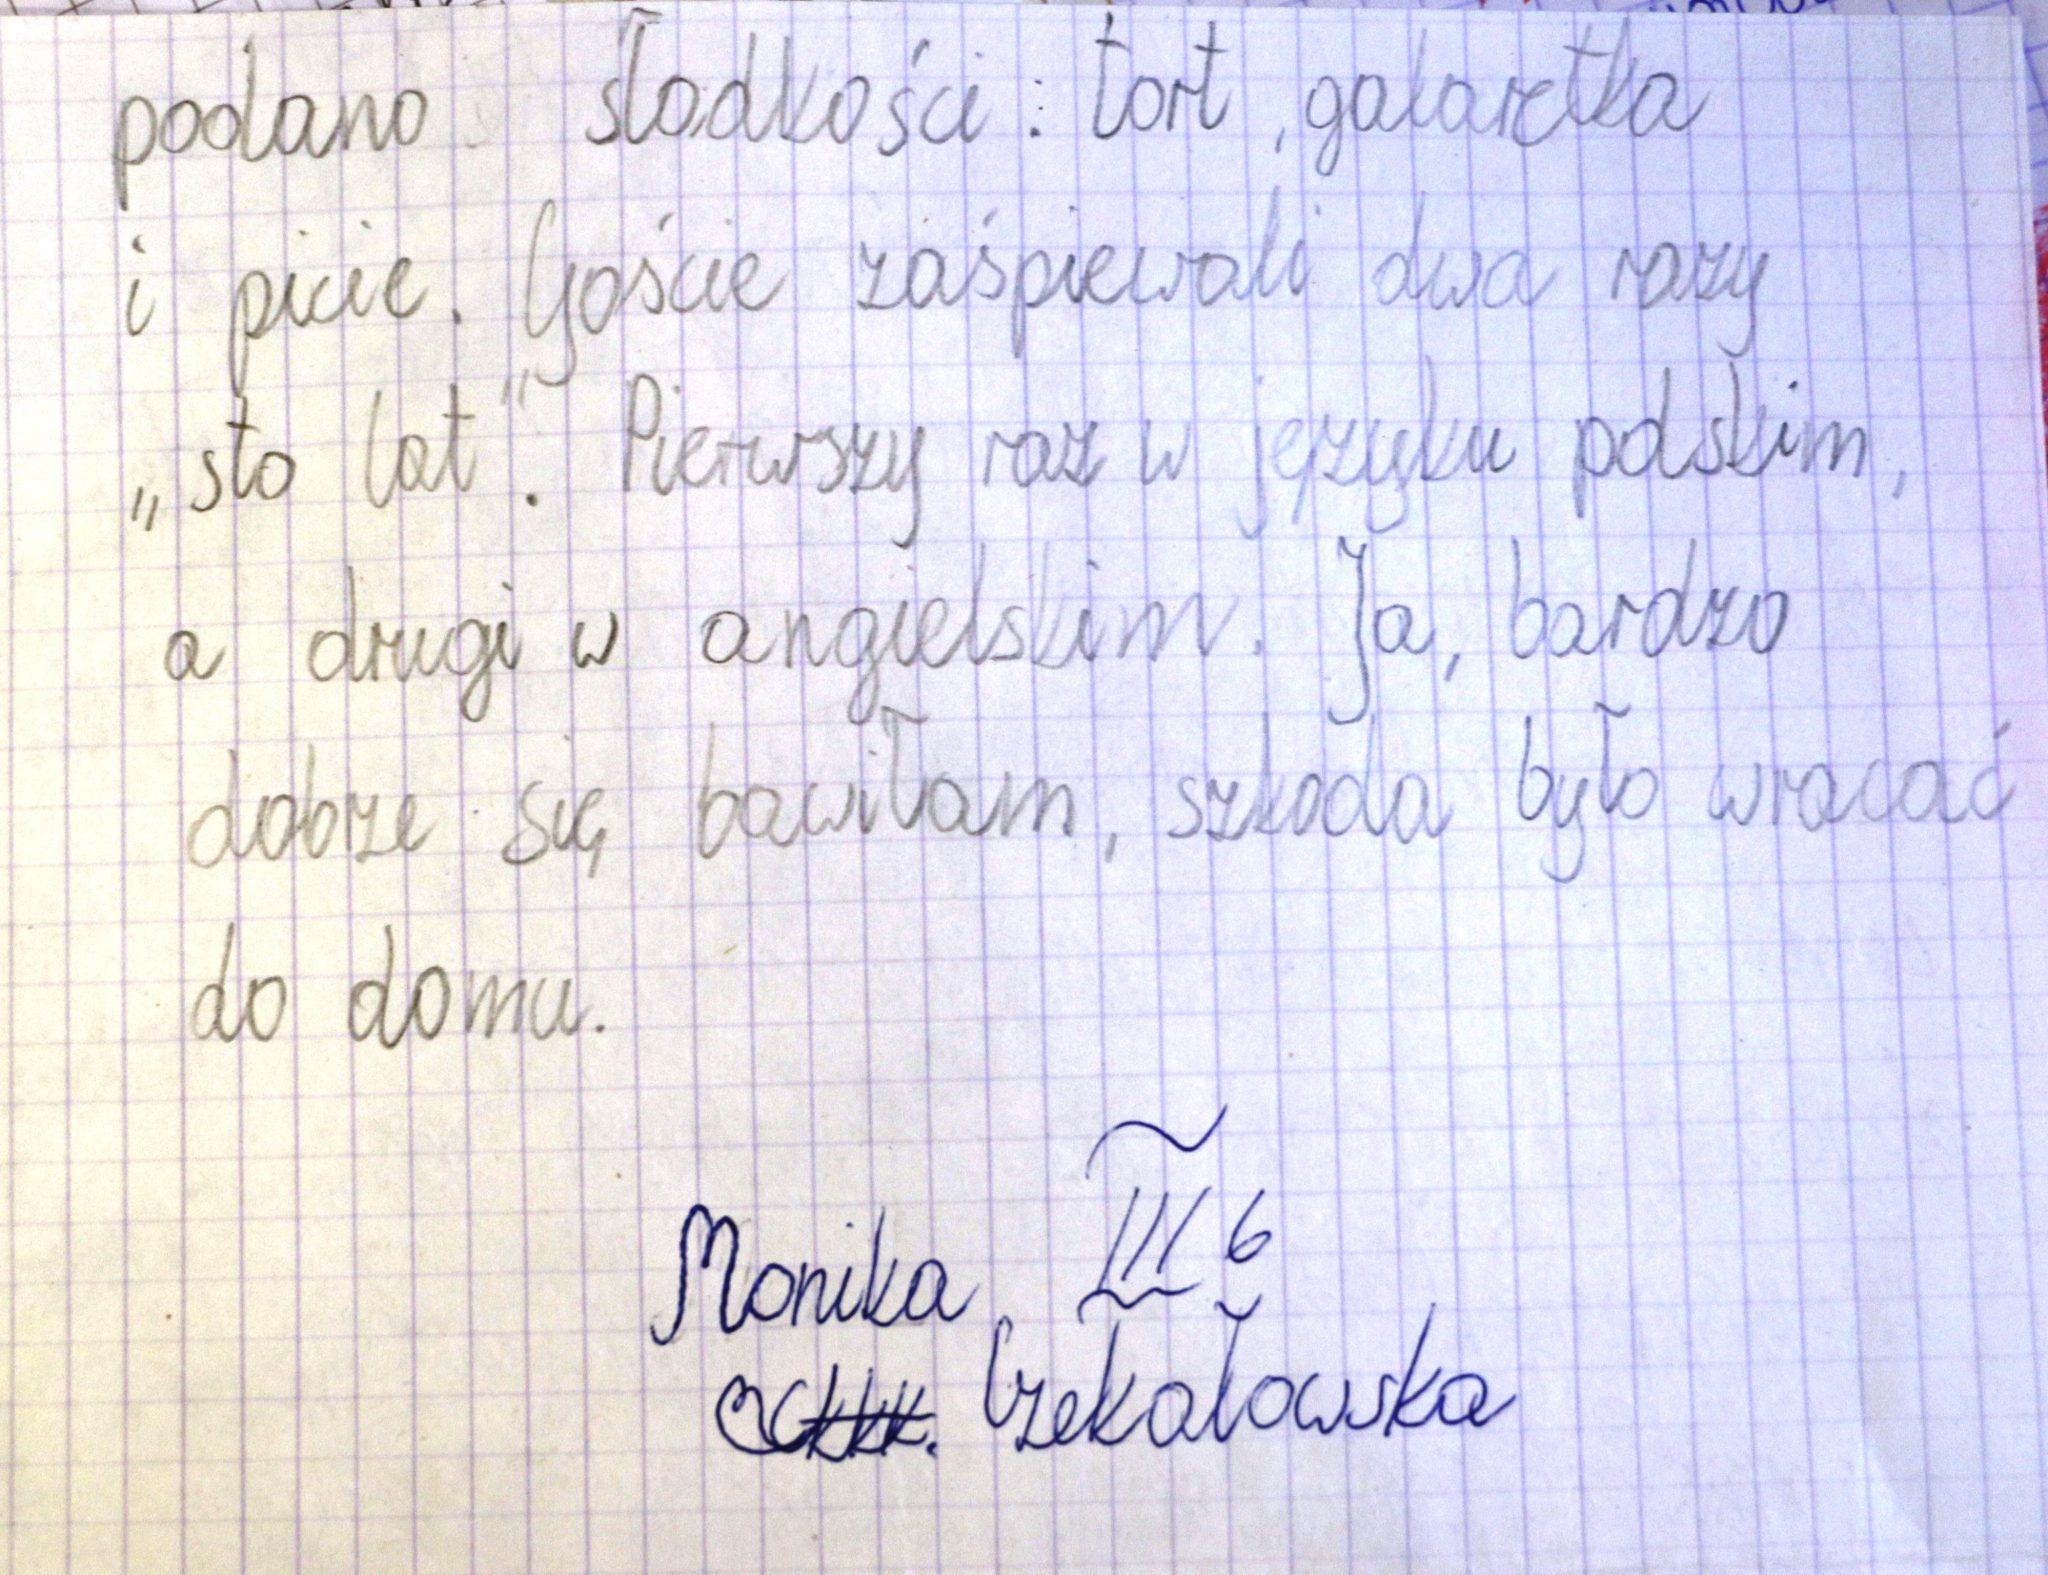 podano słodkości: tort, galaretka
i picie. Goście zaśpiewali dwa razy
„sto lat". Pierwszy raz w języku polskim,
a drugi w angielskim. Ja, bardzo
dobrze się bawiłam, szkoda było wracać
do domu.
III 6
Monika
Czekałowska